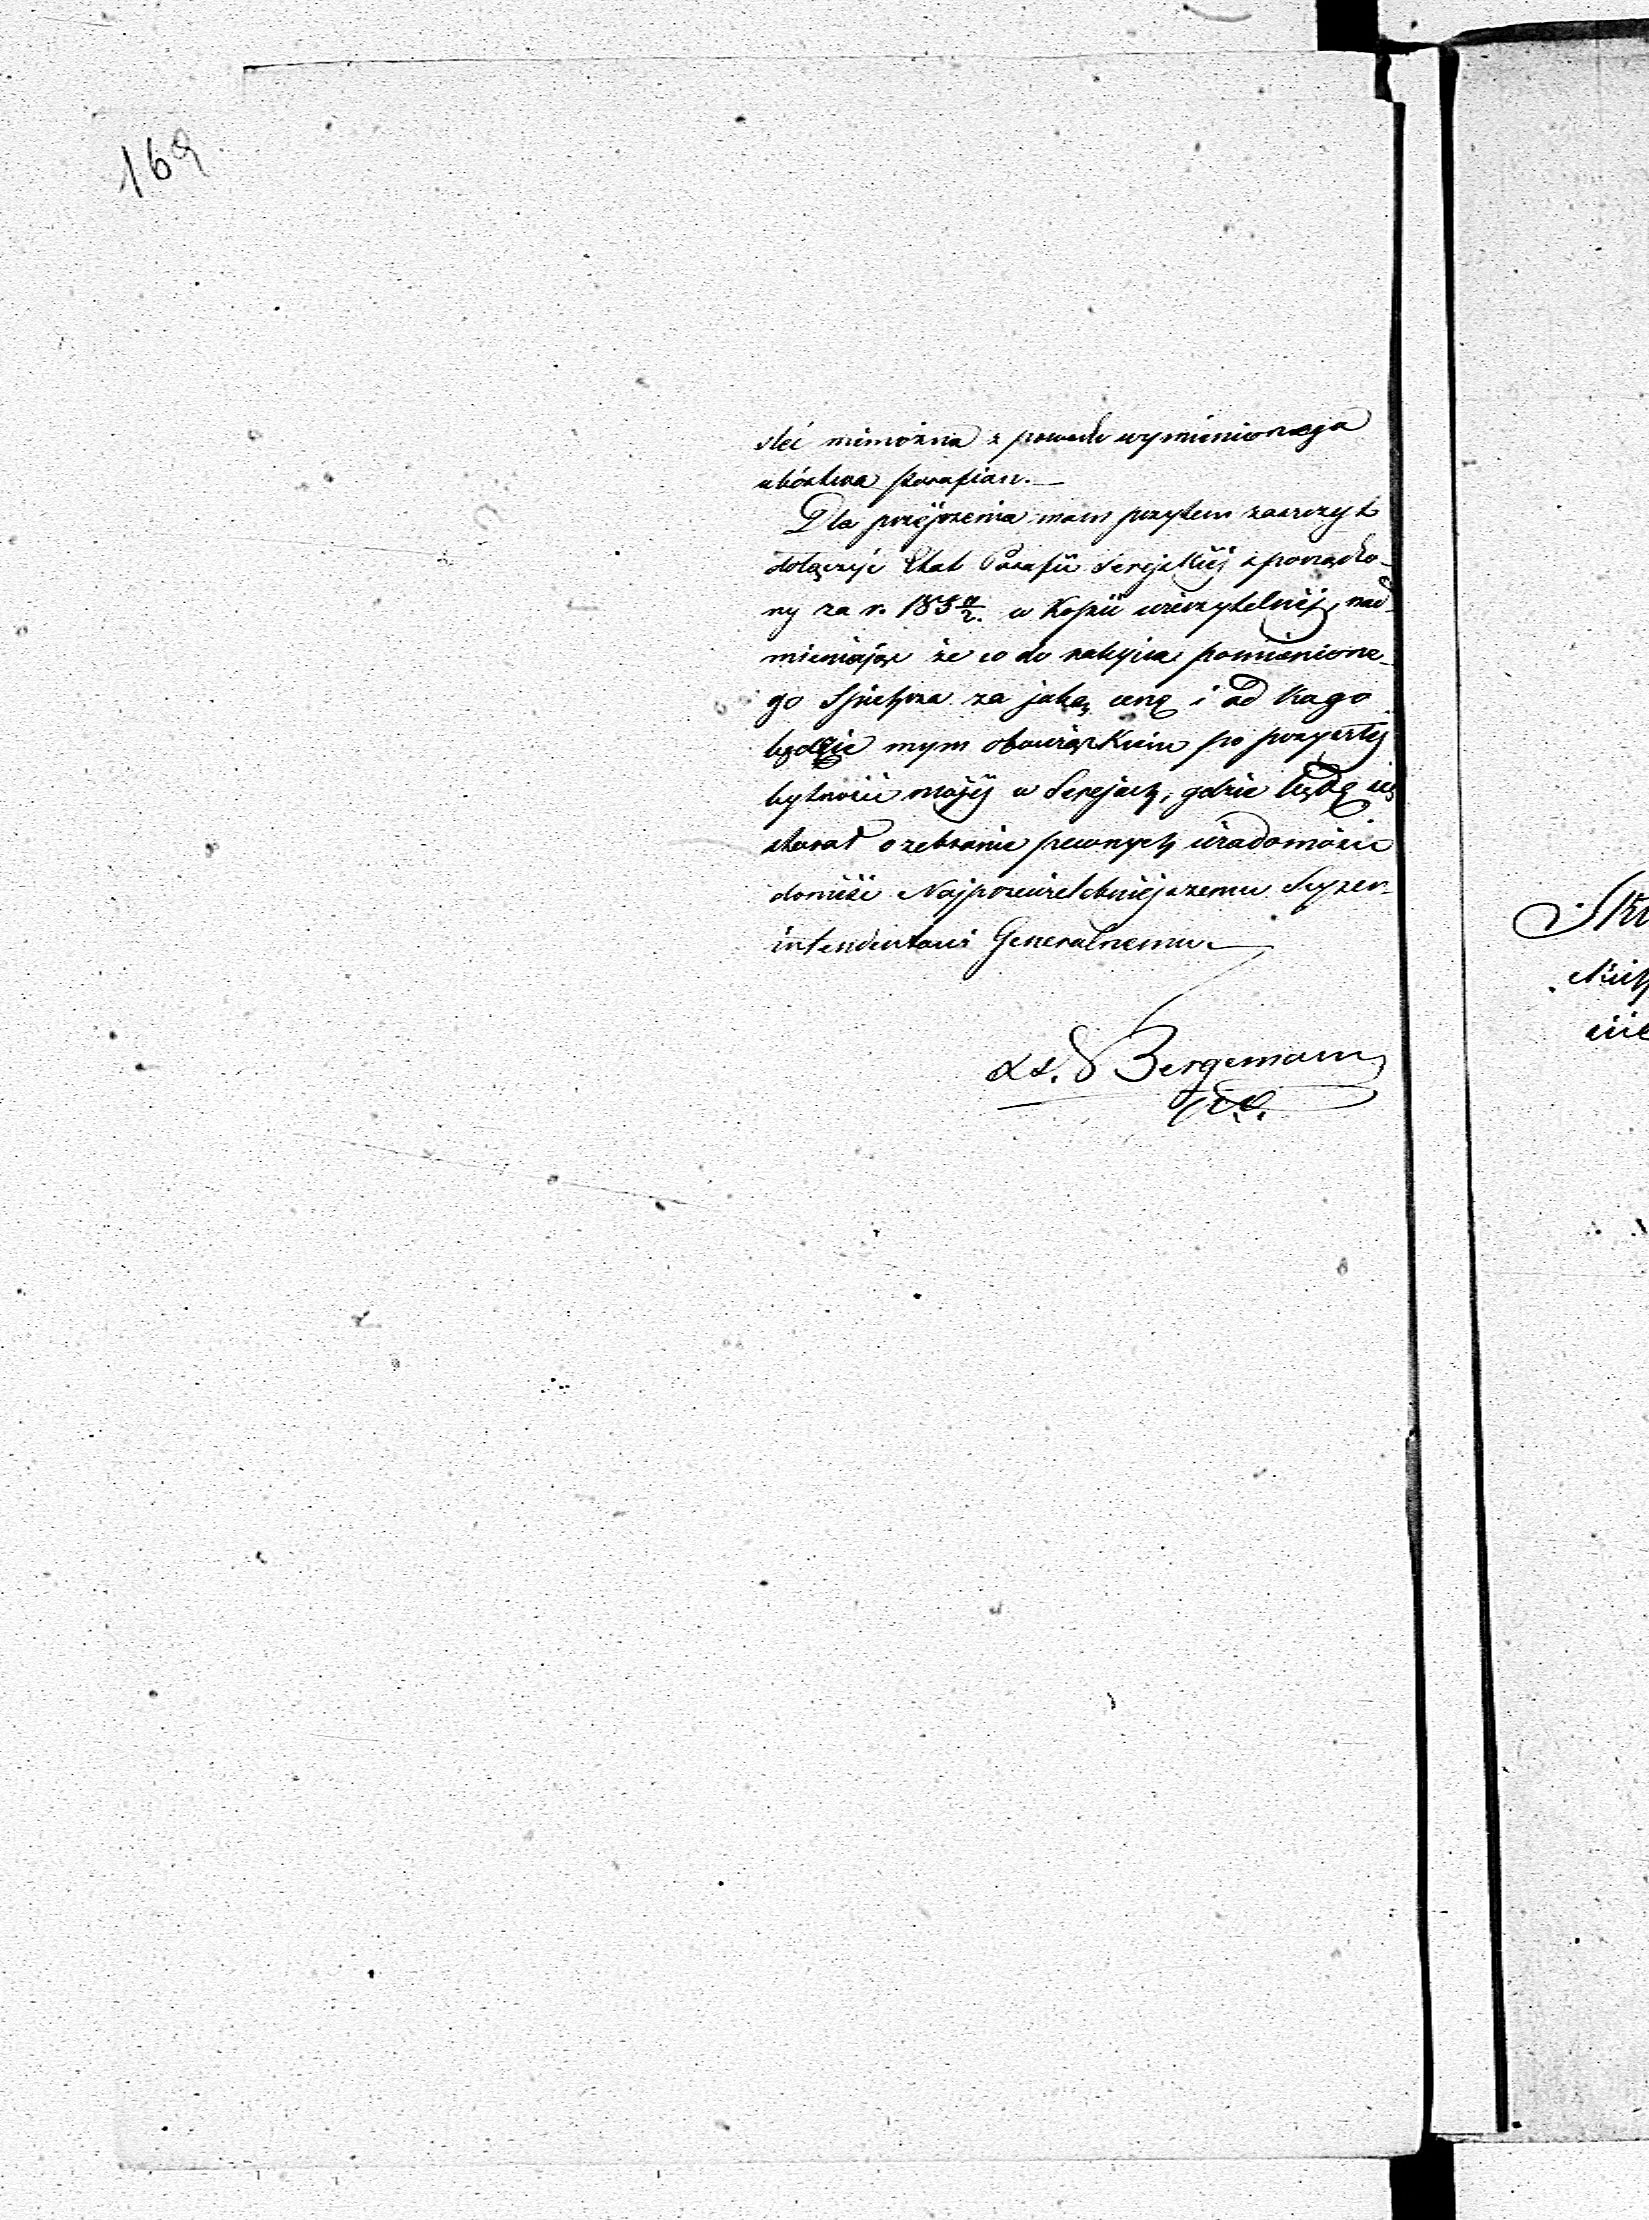 169
słać niemożna z powodu wymienionego
ubóstwa parafian.—
Dla przejrzenia mam przytem zaszczyt
dołączyć Etat Parafii Serejskiej sporządzo-
ny za r. 185 w Kopii wierzytelnej, nad-
mieniając że co do nabycia pomienione-
go Spichrza za jaką cenę i od kogo
będzie mym obowiązkiem po
bytności mojej w Serejach, gdzie będę się
starał o zebranie pewnych wiadomości
donieść Najprzewielebniejszemu Super-
intendentowi Generalnemu.—
Xs. Bergemann